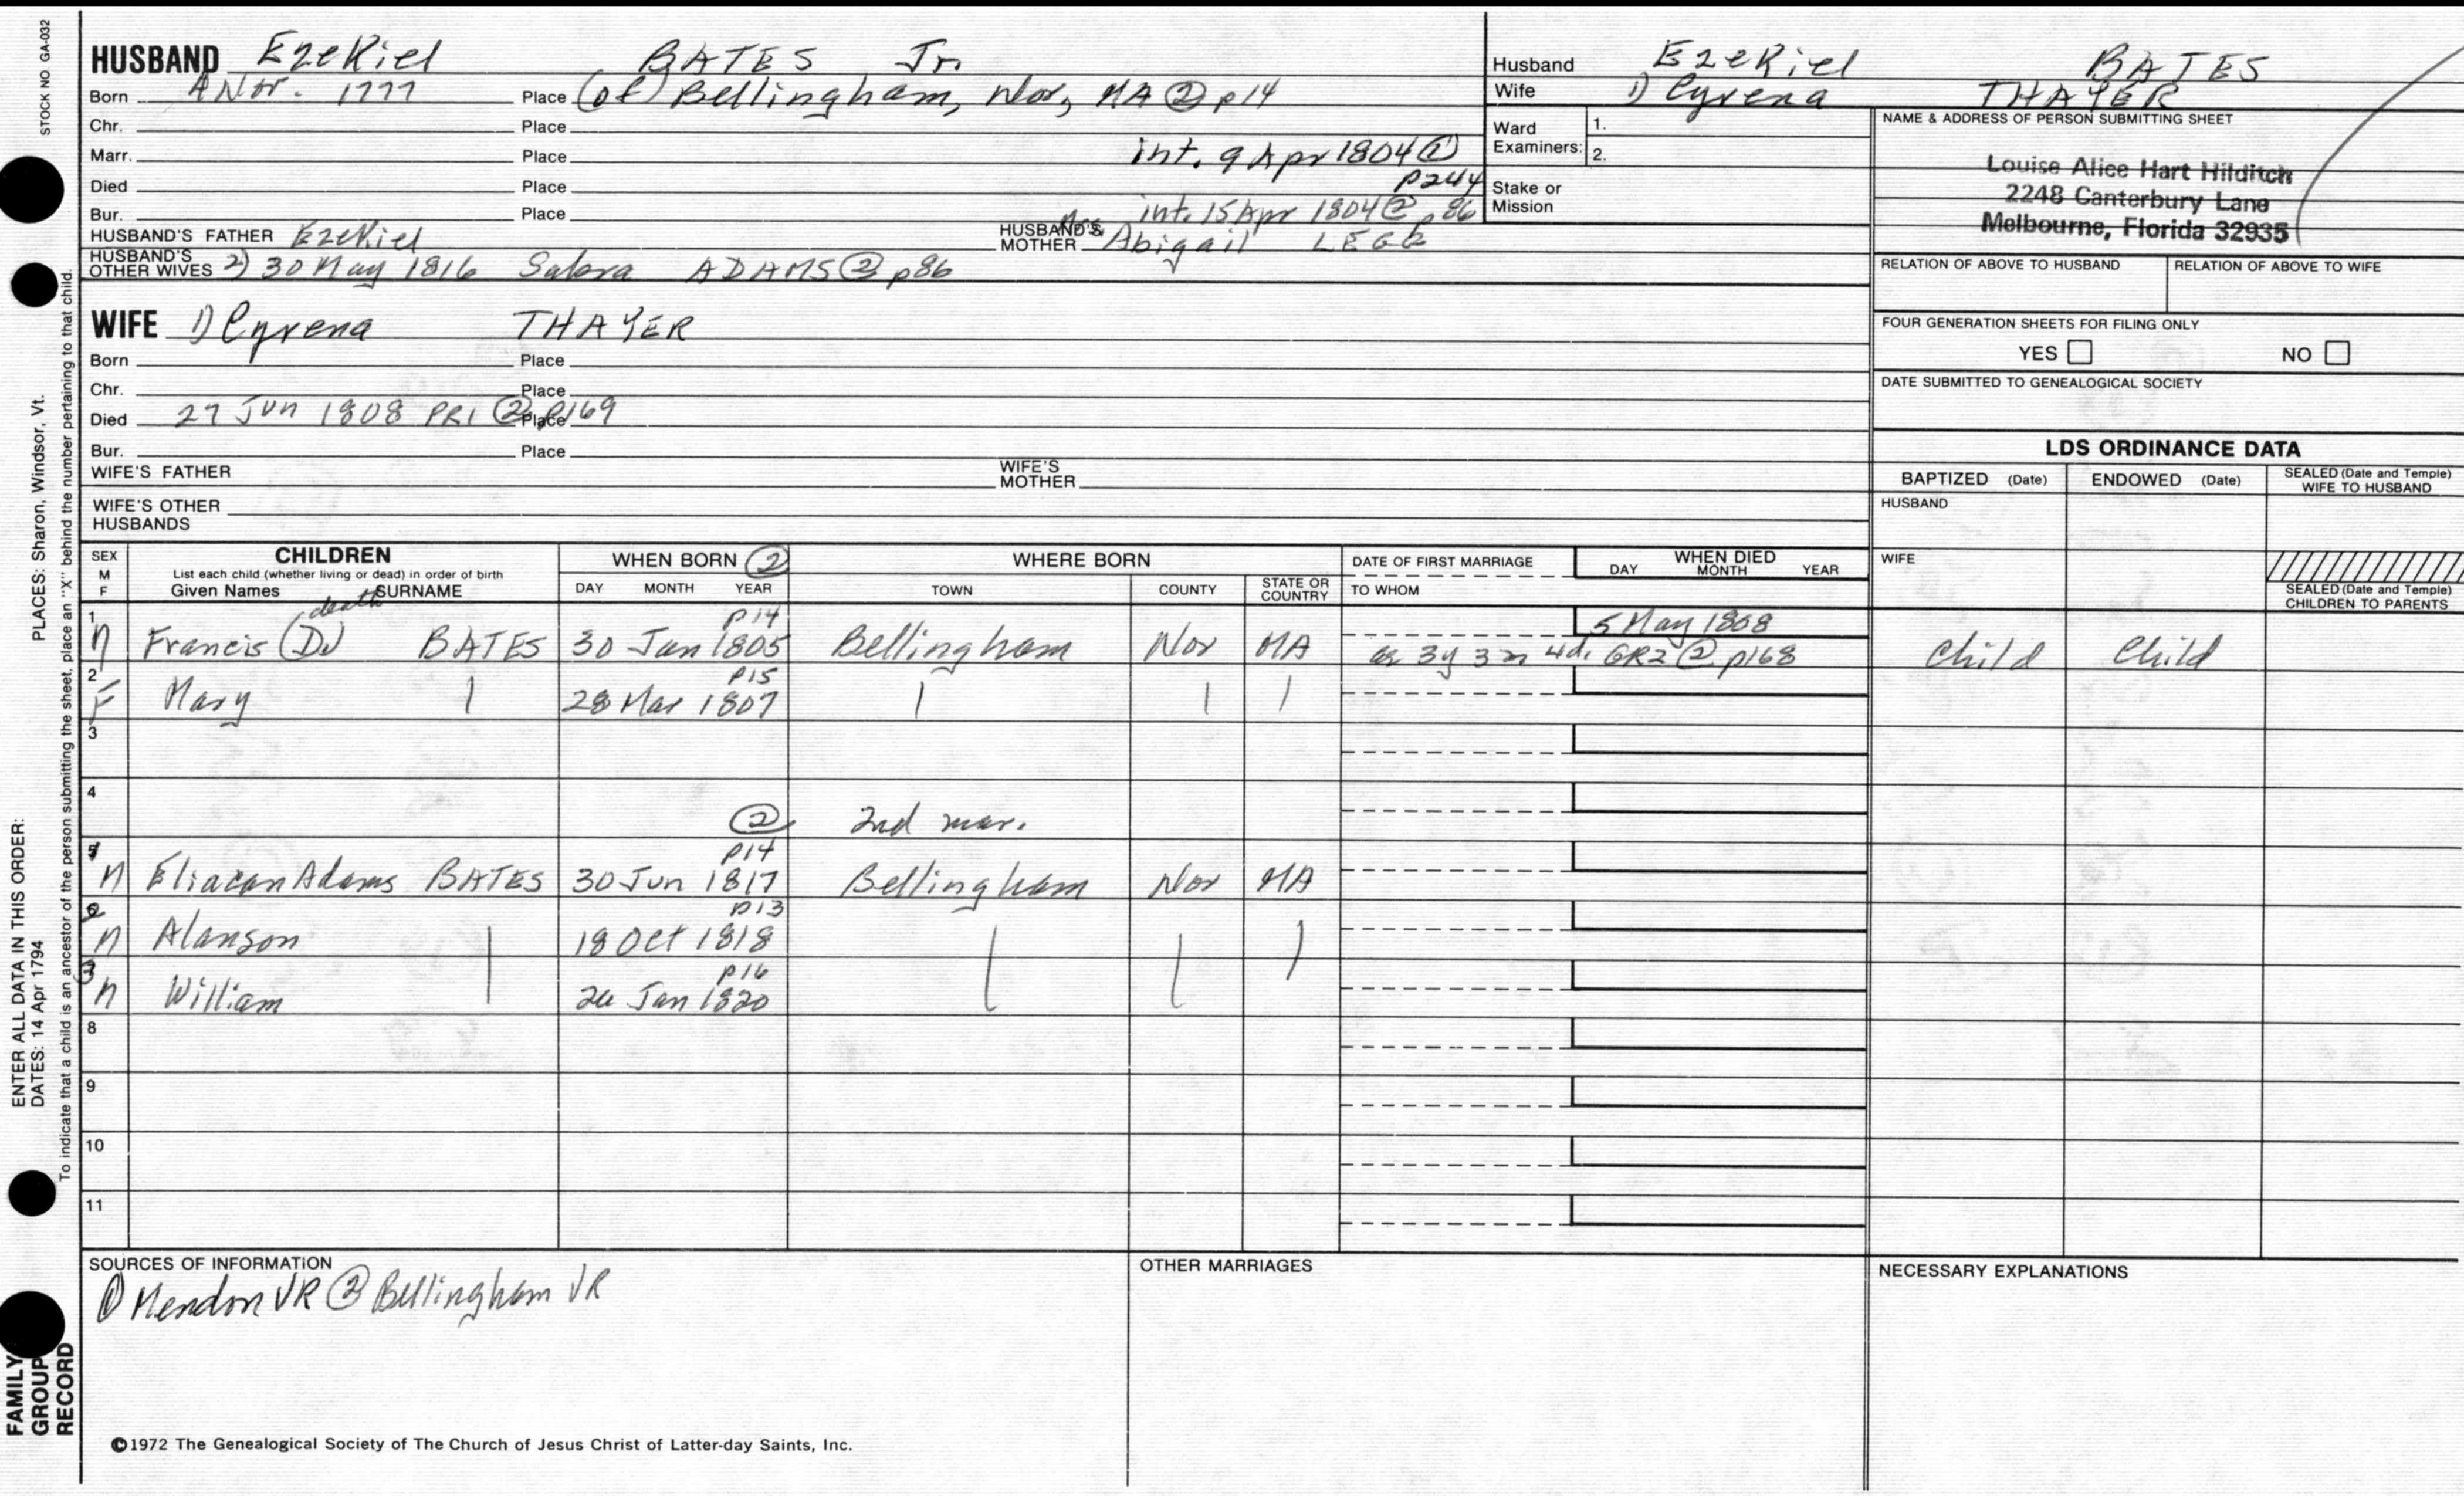 STOCK NO. GA-032
HUSBAND Ezekiel BATES Jr.
Born 4 Nov. 1777 Place (of) Bellingham, Nor, MA ② p14
Chr. Place
Marr. Place int. 9 Apr 1804 ①
p244
Died Place
Bur. Place int. 15 Apr 1804 ② p86
HUSBAND'S FATHER Ezekiel HUSBAND'S MOTHER Mrs Abigail LEGG
HUSBAND'S OTHER WIVES 2) 30 May 1816 Salora ADAMS ② p86
WIFE 1) Cyrena THAYER
Born Place
Chr. Place
Died 27 Jun 1808 PR1 ② p169 Place
Bur. Place
WIFE'S FATHER WIFE'S MOTHER
WIFE'S OTHER HUSBANDS
Husband Ezekiel BATES
Wife 1) Cyrena THAYER
Ward Examiners: 1.
2.
Stake or Mission
NAME & ADDRESS OF PERSON SUBMITTING SHEET
Louise Alice Hart Hilditch
2248 Canterbury Lane
Melbourne, Florida 32935
RELATION OF ABOVE TO HUSBAND RELATION OF ABOVE TO WIFE
FOUR GENERATION SHEETS FOR FILING ONLY
YES NO
DATE SUBMITTED TO GENEALOGICAL SOCIETY
LDS ORDINANCE DATA
BAPTIZED (Date) ENDOWED (Date) SEALED (Date and Temple) WIFE TO HUSBAND
HUSBAND
WIFE
SEALED (Date and Temple) CHILDREN TO PARENTS
SEX M F CHILDREN WHEN BORN ② WHERE BORN DATE OF FIRST MARRIAGE WHEN DIED
List each child (whether living or dead) in order of birth
Given Names SURNAME DAY MONTH YEAR TOWN COUNTY STATE OR COUNTRY TO WHOM DAY MONTH YEAR
death
1 p14 5 May 1808
M Francis (D.) BATES 30 Jan 1805 Bellingham Nor MA ae 3y 3m 4d. GR2 ② p168 Child Child
2 p15
F Mary 28 Mar 1807
3
4
② 2nd mar.
p14
M Eliacan Adams BATES 30 Jun 1817 Bellingham Nor MA
p13
M Alanson 18 Oct 1818
3 p16
M William Jan 1820
8
9
10
11
SOURCES OF INFORMATION OTHER MARRIAGES NECESSARY EXPLANATIONS
① Mendon VR ② Bellingham VR
©1972 The Genealogical Society of The Church of Jesus Christ of Latter-day Saints, Inc.
ENTER ALL DATA IN THIS ORDER:
DATES: 14 Apr 1794 PLACES: Sharon, Windsor, Vt.
To indicate that a child is an ancestor of the person submitting the sheet, place an "X" behind the number pertaining to that child.
FAMILY GROUP RECORD